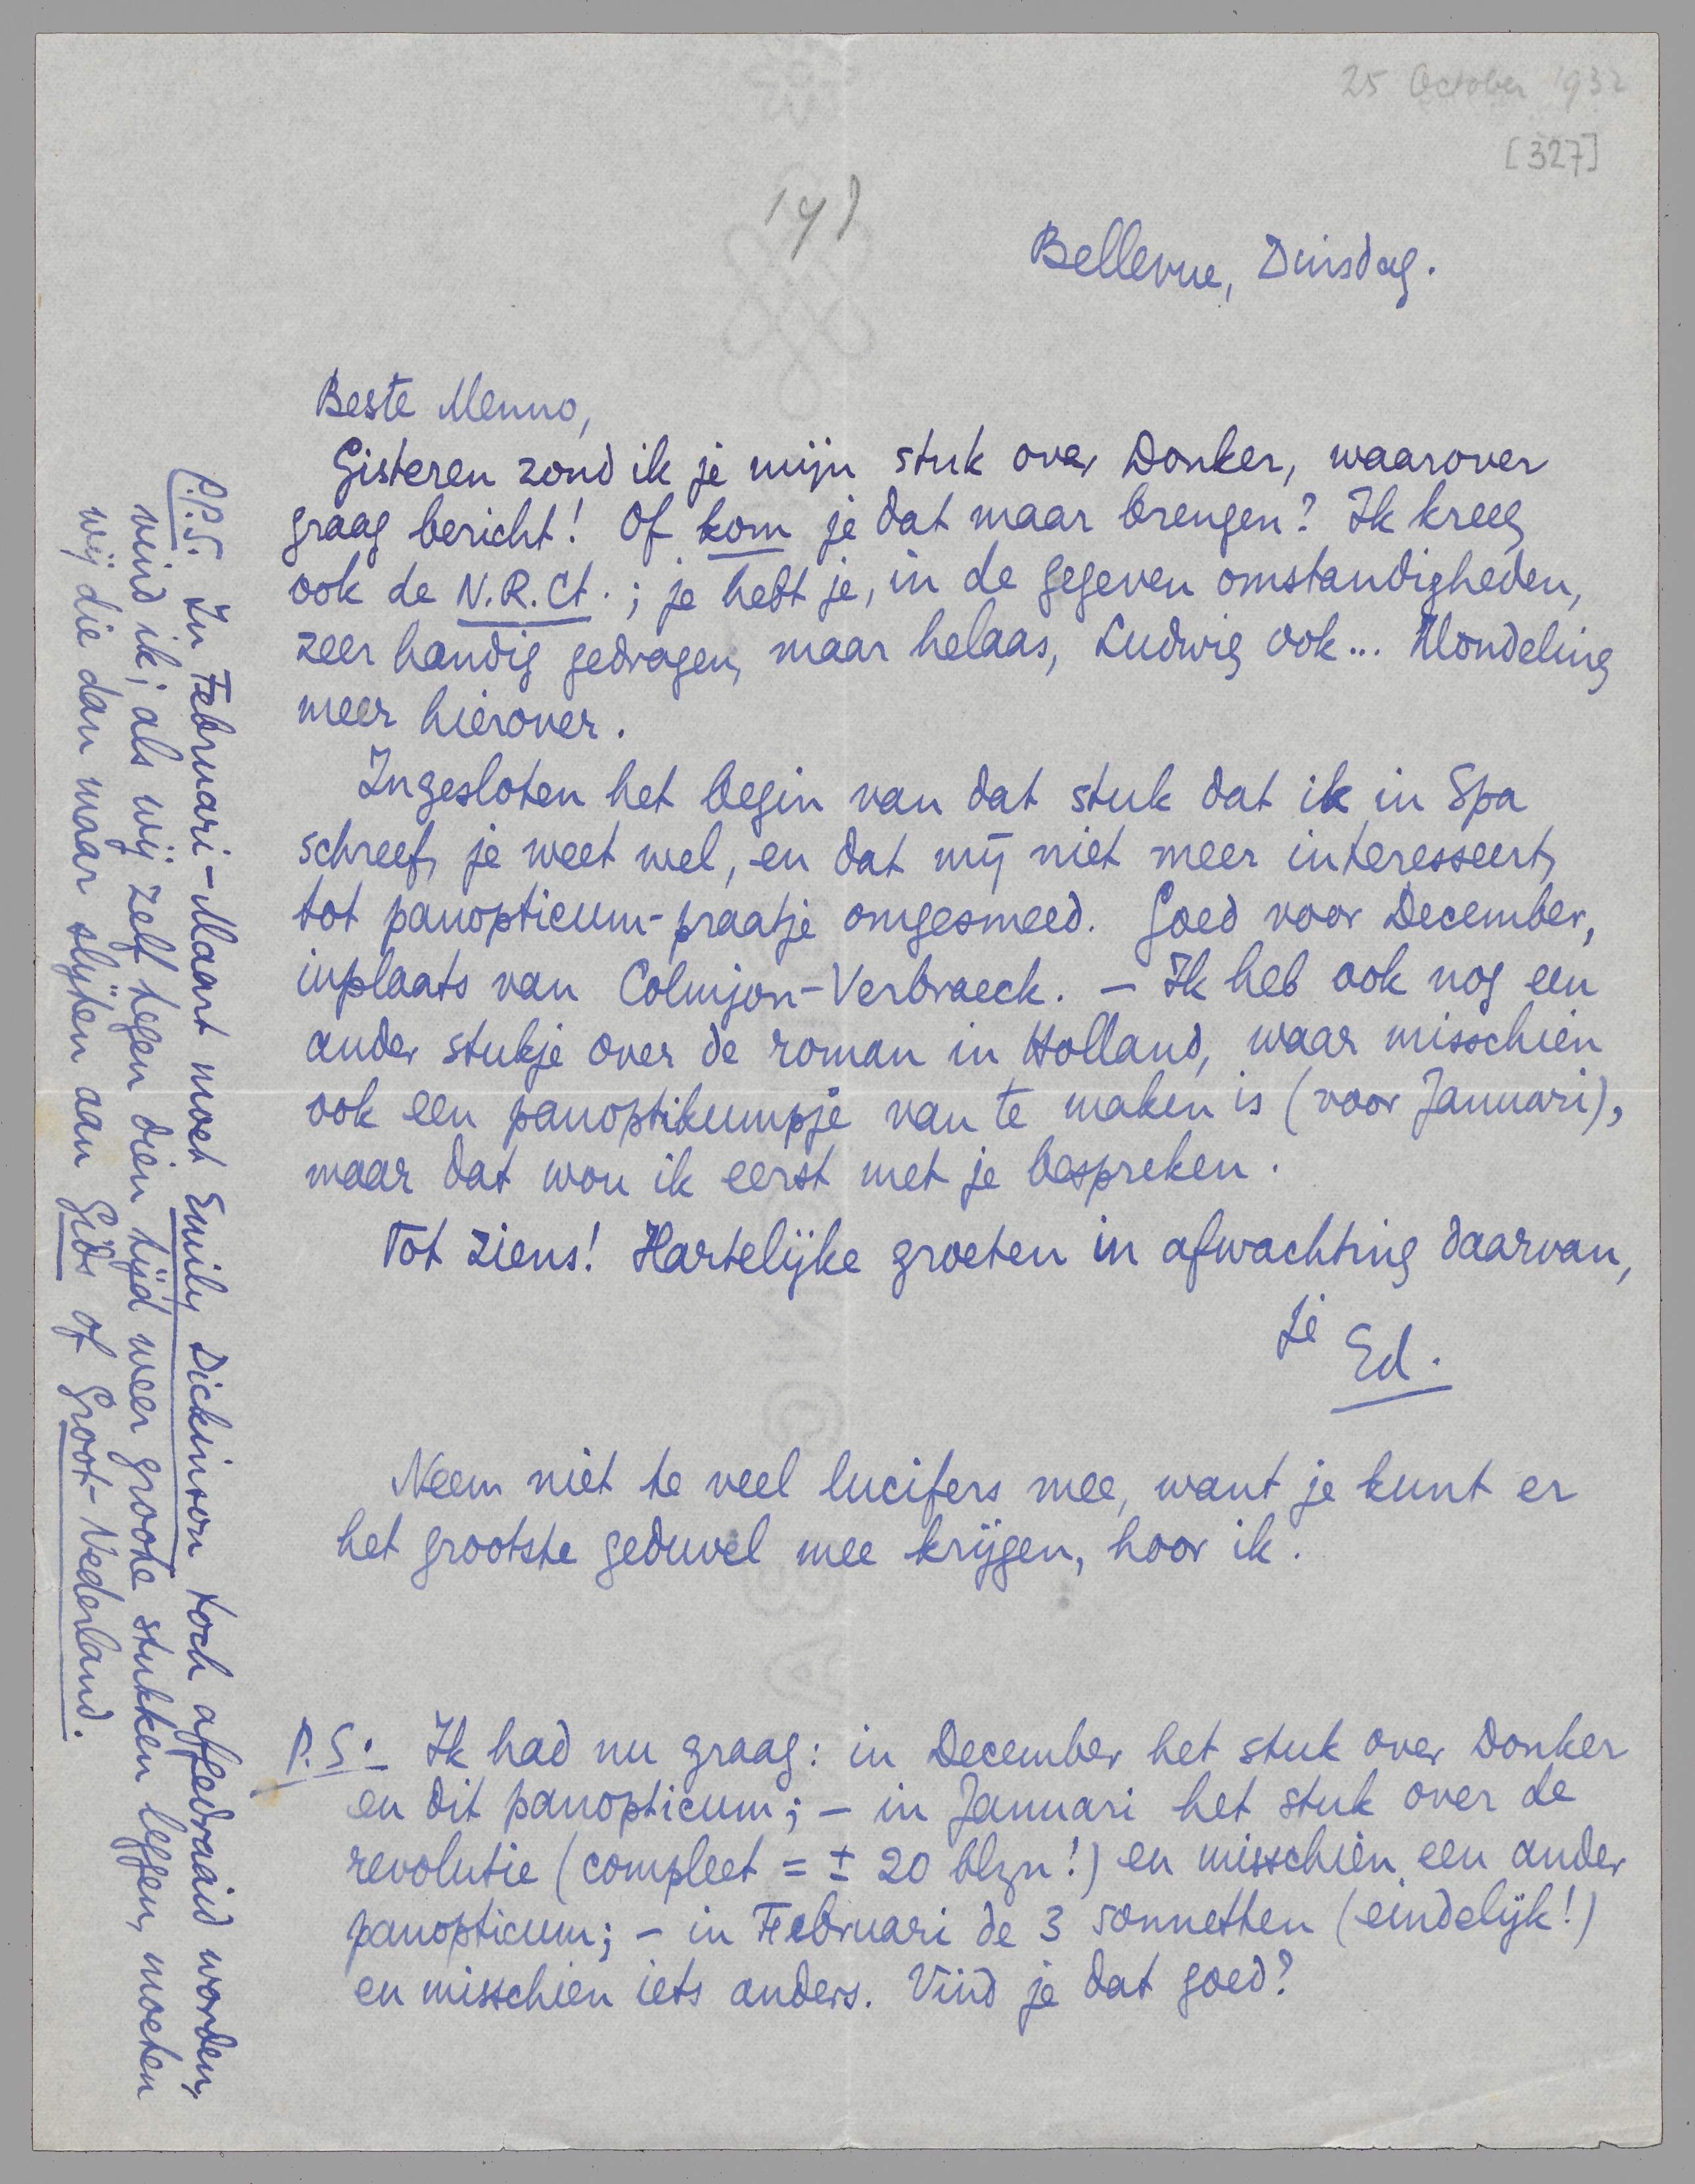 25 October 1932
[327]
191
Bellevue, Dinsdag.
Beste Menno,
Gisteren zond ik je mijn stuk over Donker, waarover
graag bericht! Of kom je dat maar brengen? Ik kreeg
ook de N.R.Ct.; je hebt je, in de gegeven omstandigheden,
zeer handig gedragen, maar helaas, Ludwig ook... Mondeling
meer hierover.
Ingesloten het begin van dat stuk dat ik in Spa
schreef, je weet wel, en dat mij niet meer interesseert,
tot panopticum-praatje omgesmeed. Goed voor December,
inplaats van Colmjon-Verbraeck. – Ik heb ook nog een
ander stukje over de roman in Holland, waar misschien
ook een panoptikumpje van te maken is (voor Januari),
maar dat wou ik eerst met je bespreken.
Tot ziens! Hartelijke groeten in afwachting daarvan,
je
Ed.
Neem niet te veel lucifers mee, want je kunt er
het grootste geduvel mee krijgen, hoor ik.
P.S. – Ik had nu graag: in December het stuk over Donker
en dit panopticum; – in Januari het stuk over de
revolutie (compleet = ± 20 blzn!) en misschien een ander
panopticum; – in Februari de 3 sonnetten (eindelijk!)
en misschien iets anders. Vind je dat goed?
P.P.S. In Februari-Maart moet Emily Dickinson toch afgedraaid worden,
vind ik; als wij zelf tegen dien tijd weer groote stukken leggen, moeten
wij die dan maar slijten aan Gids of Groot-Nederland.